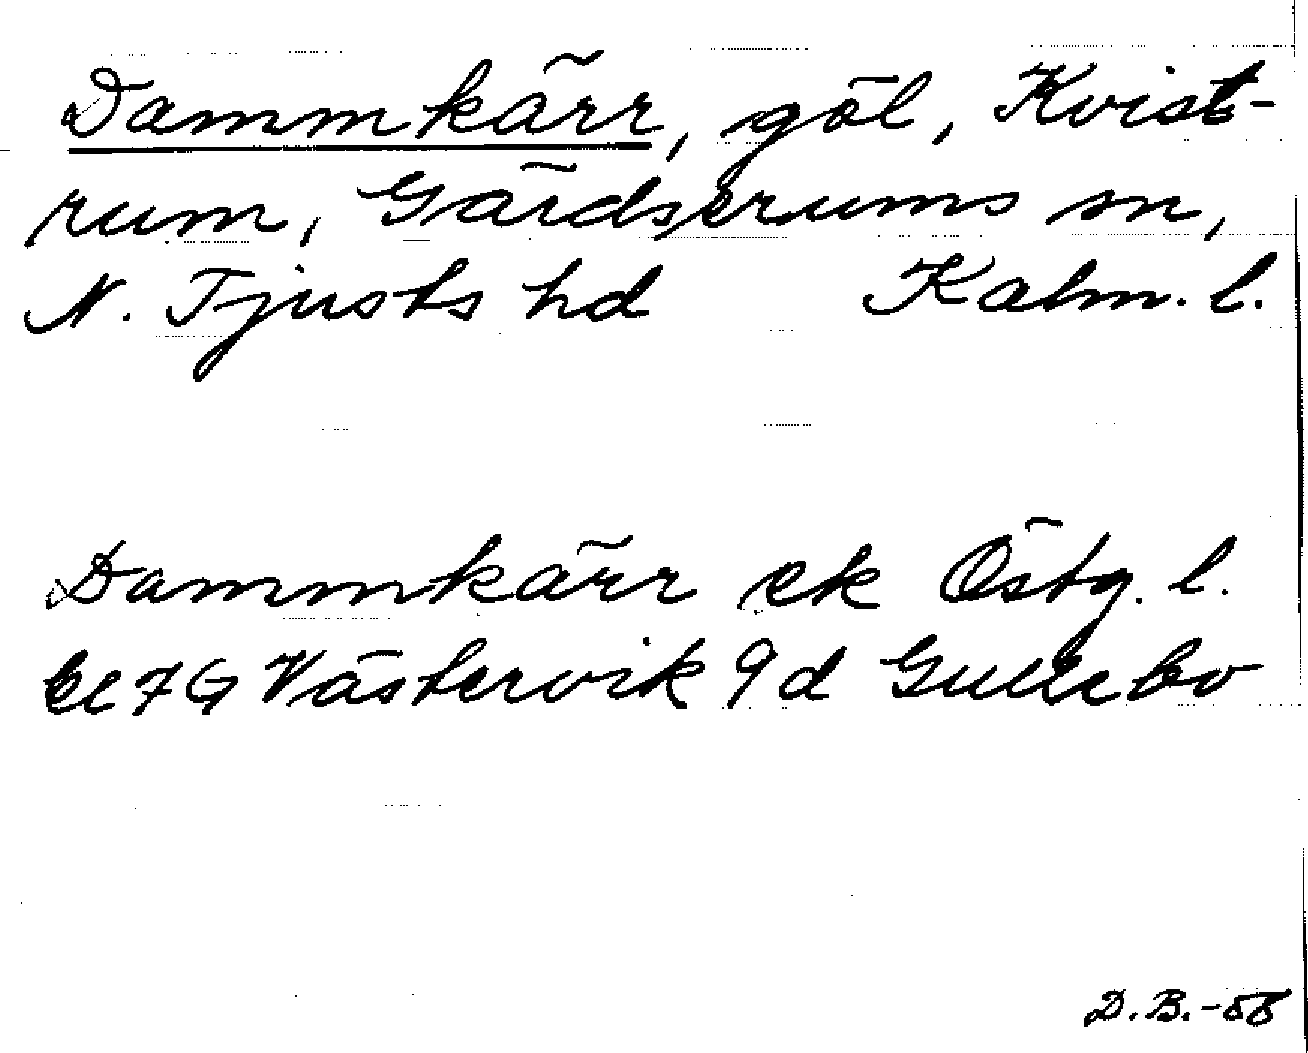 Dammkärr, göl, Kvist-
rum, Gärdserums sn,
N. Tjusts hd Kalm. l.
Dammkärr ek Östg. l.
bl 7G Västervik 9d Gullebo
D.B.-58